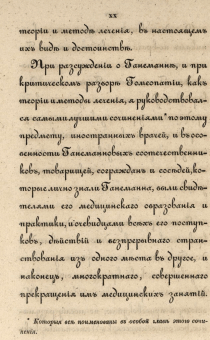 xx
теоріи и методѣ леченія, въ настоящемъ
ихъ видѣ и достоинствѣ.
При разсужденіи о Ганеманнѣ, и при
критическомъ разборѣ Гомеопатіи, какъ
теоріи и методы леченія, я руководствовал-
ся самыми лучшими сочиненіями* по этому
предмету, иностранныхъ врачей, и въ осо-
бенности Ганеманновыхъ соотечественни-
ковъ, товарищей, согражданъ и сосѣдей, ко-
торые лично знали Ганеманна, были свидѣ-
телами его медицинскаго образованія и
практики, и очевидцами всѣхъ его поступ-
ковъ, дѣйствій и безпрерывнаго стран-
ствованія изъ одного мѣста въ другое, и
наконецъ, многократнаго, совершеннаго
прекращенія имъ медицинскихъ занятій.
* Которыя всѣ поименованы въ особой главѣ этого сочи-
ненія.